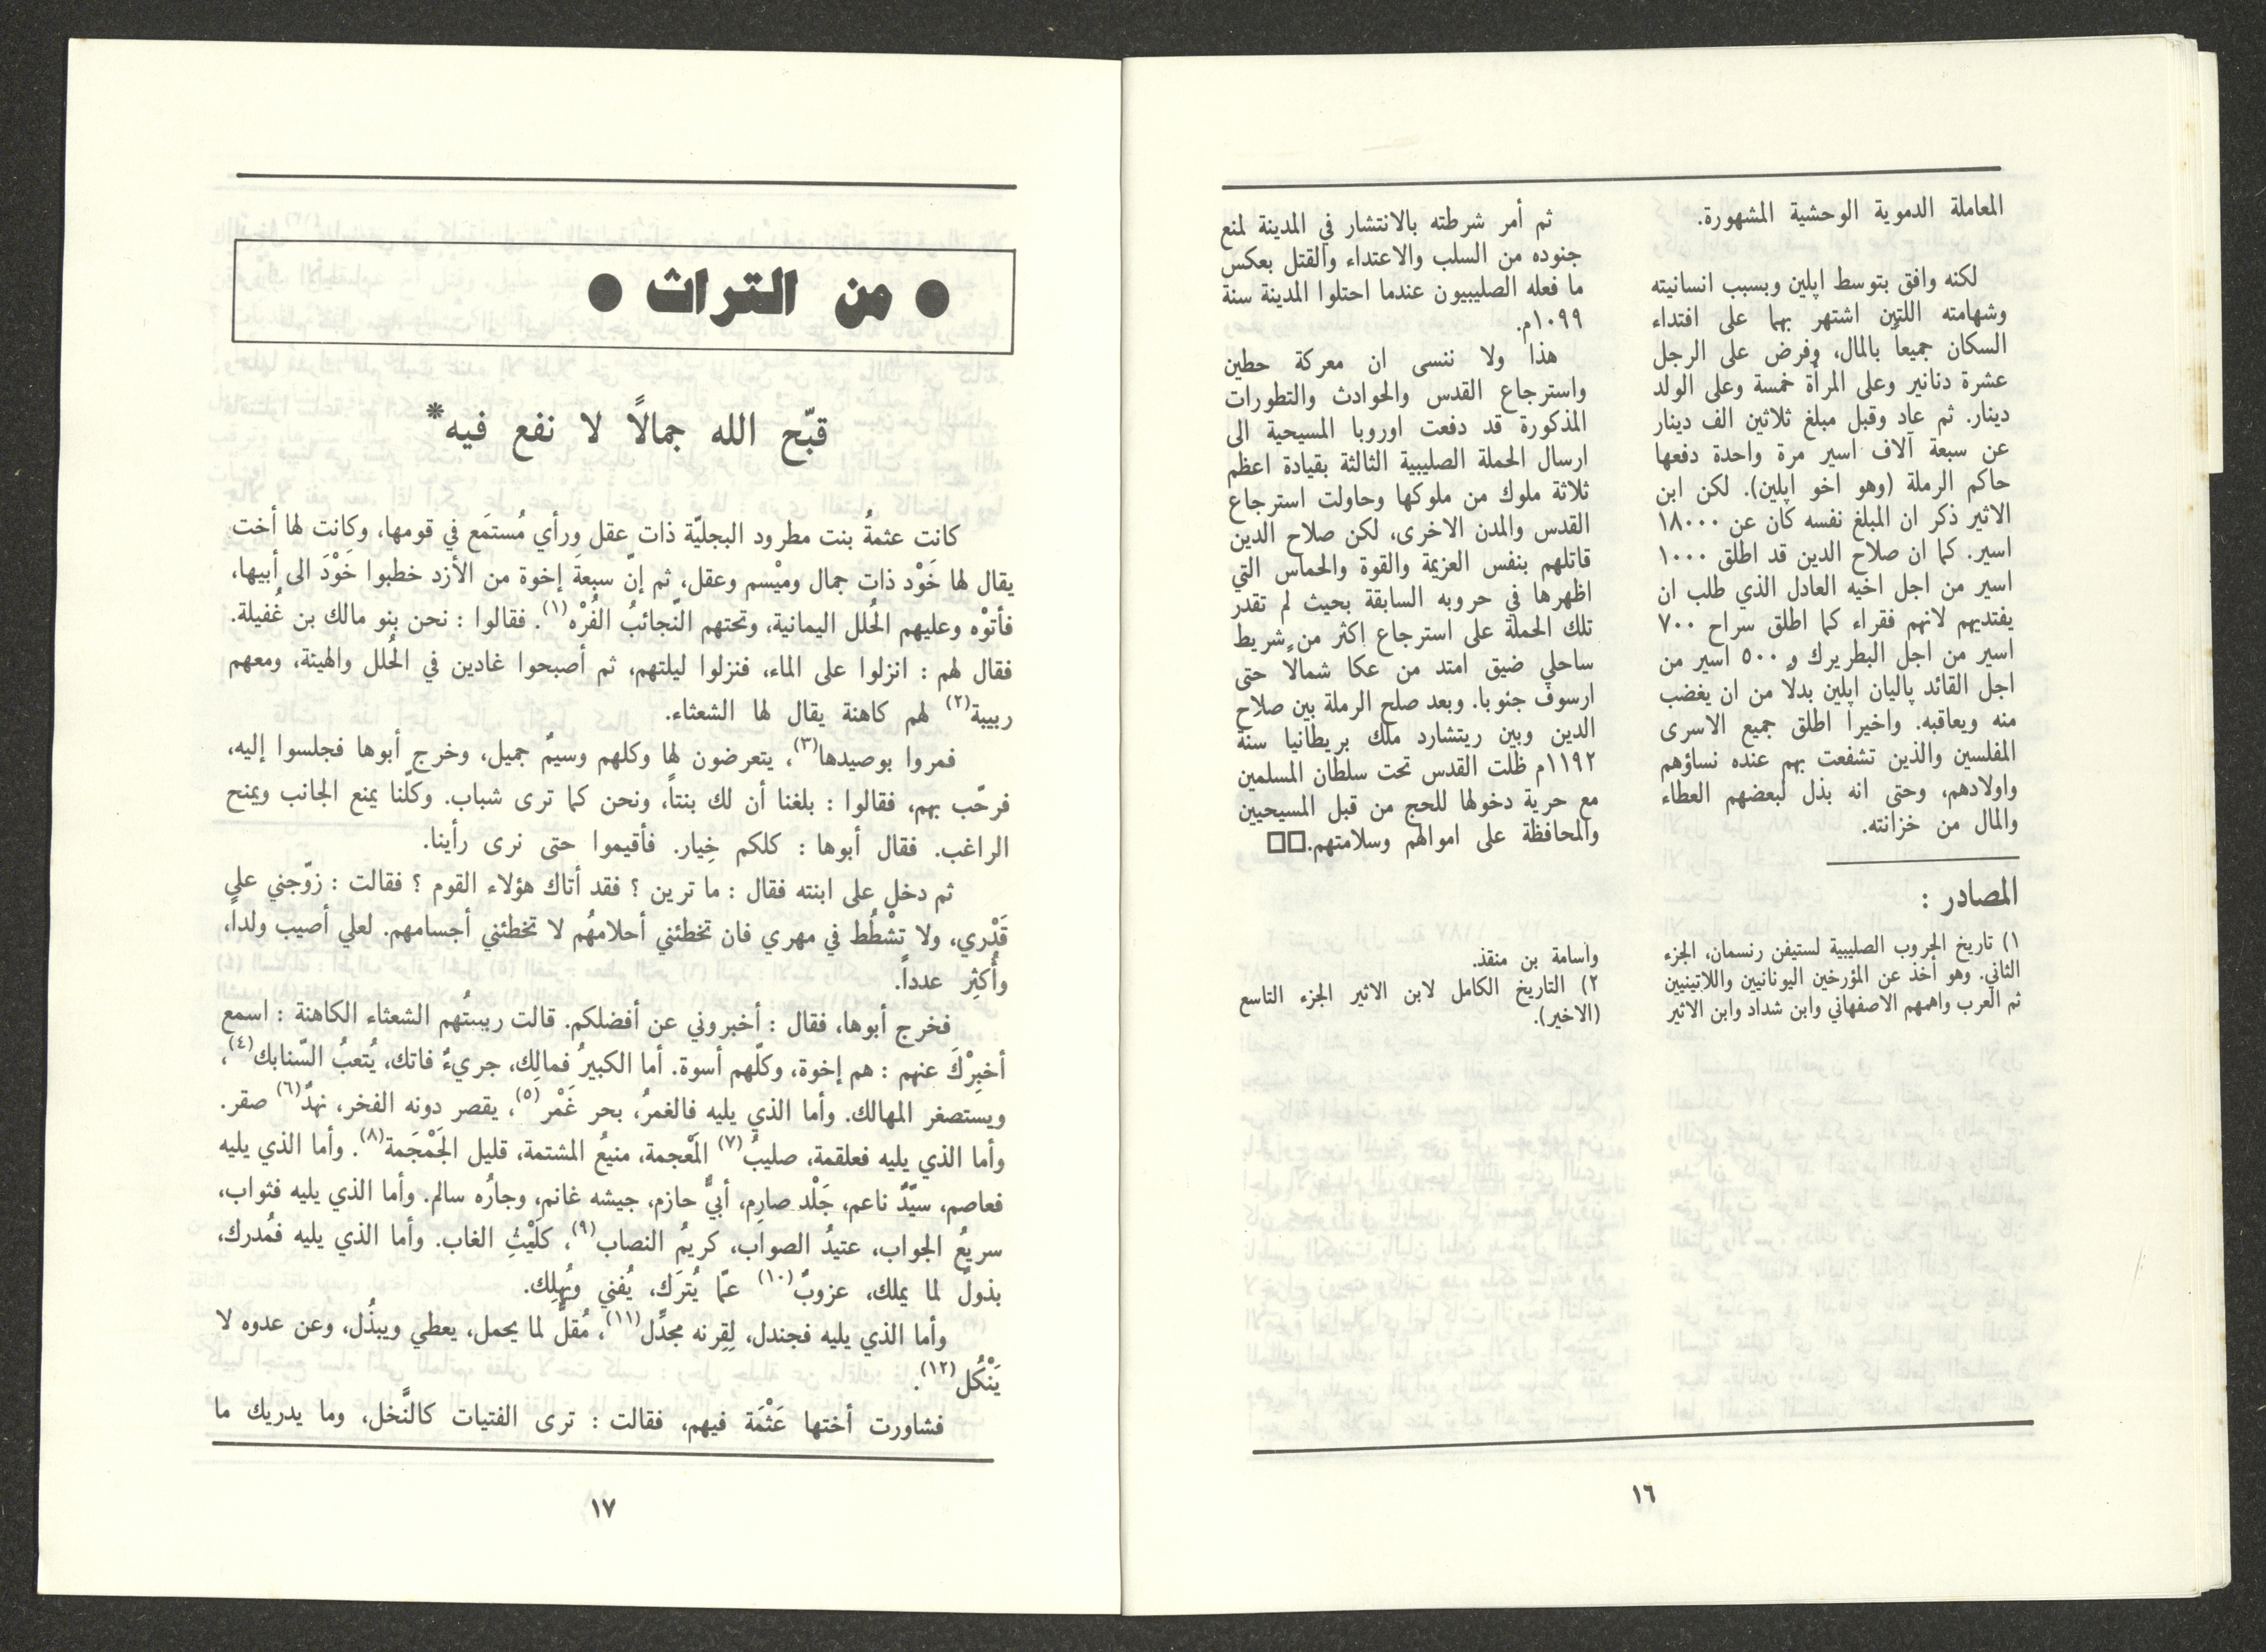 المعاملة الدموية الوحشية المشهورة.
لكنه وافق بتوسط اپلين وبسبب انسانيته
وشهامته اللتين اشتهر بهما على افتداء
السكان جميعاً بالمال، وفرض على الرجل
عشرة دنانير وعلى المرأة خمسة وعلى الولد
دينار. ثم عاد وقبل مبلغ ثلاثين الف دينار
عن سبعة آلاف اسير مرة واحدة دفعها
حاكم الرملة (وهو اخو اپلين). لكن ابن
الاثير ذكر ان المبلغ نفسه كان عن ١٨٠٠٠
اسير. كما ان صلاح الدين قد اطلق ١٠٠٠
اسير من اجل اخيه العادل الذي طلب ان
يفتديهم لانهم فقراء كما اطلق سراح ٧٠٠
اسير من اجل البطريرك و ٥٠٠ اسير من
اجل القائد پاليان اپلين بدلاً من ان يغضب
منه ويعاقبه. واخيرا اطلق جميع الاسرى
المفلسين والذين تشفعت بهم عنده نساؤهم
واولادهم، وحتى انه بذل لبعضهم العطاء
والمال من خزانته.
المصادر :
١) تاريخ الحروب الصليبية لستيفن رنسمان، الجزء
الثاني. وهو أخذ عن المؤرخين اليونانيين واللاتينيين
ثم العرب واهمهم الاصفهاني وابن شداد وابن الاثير
ثم أمر شرطته بالانتشار في المدينة لمنع
جنوده من السلب والاعتداء والقتل بعكس
ما فعله الصليبيون عندما احتلوا المدينة سنة
١٠٩٩م.
هذا ولا ننسى ان معركة حطين
واسترجاع القدس والحوادث والتطورات
المذكورة قد دفعت اوروبا المسيحية الى
ارسال الحملة الصليبية الثالثة بقيادة اعظم
ثلاثة ملوك من ملوكها وحاولت استرجاع
القدس والمدن الاخرى، لكن صلاح الدين
قاتلهم بنفس العزيمة والقوة والحماس التي
اظهرها في حروبه السابقة بحيث لم تقدر
تلك الحملة على استرجاع اكثر من شريط
ساحلي ضيق امتد من عكا شمالاً حتى
ارسوف جنوبا. وبعد صلح الرملة بين صلاح
الدين وبين ريتشارد ملك بريطانيا سنة
١١٩٢م ظلت القدس تحت سلطان المسلمين
مع حرية دخولها للحج من قبل المسيحيين
والمحافظة على اموالهم وسلامتهم.□□
واسامة بن منقذ.
٢) التاريخ الكامل لابن الاثير الجزء التاسع
(الاخير).
١٦
● من التراث ●
قبّح الله جمالاً لا نفع فيه*
كانت عثمةُ بنت مطرود البجليّة ذات عقل ورأي مُستمَع في قومها، وكانت لها أخت
يقال لها خَوْد ذات جمال وميْسم وعقل، ثم إنّ سبعةَ إخوة من الأزد خطبوا خَوْدَ الى أبيها،
فأتوْه وعليهم الحُلل اليمانية، وتحتهم النّجائبُ الفُرْه(١). فقالوا : نحن بنو مالك بن غُفيلة.
فقال لهم : انزلوا على الماء، فنزلوا ليلتهم، ثم أصبحوا غادين في الحُلل والهيئة، ومعهم
ربيبة(٢) لهم كاهنة يقال لها الشعثاء.
فمروا بوصيدها(٣)، يتعرضون لها وكلهم وسيمٌ جميل، وخرج أبوها فجلسوا إليه،
فرحّب بهم، فقالوا : بلغنا أن لك بنتاً، ونحن كما ترى شباب. وكلّنا يمنع الجانب ويمنح
الراغب. فقال أبوها : كلكم خِيار. فأقيموا حتى نرى رأينا.
ثم دخل على ابنته فقال : ما ترين ؟ فقد أتاك هؤلاء القوم ؟ فقالت : زوّجني على
قَدْري، ولا تشْطُط في مهري فان تخطئني أحلامهُم لا تخطئني أجسامهم. لعلي أصيب ولداً،
وأُكثِر عدداً.
فخرج أبوها، فقال : أخبروني عن أفضلكم. قالت ربيبتُهم الشعثاء الكاهنة : اسمع
أخبِرْكَ عنهم : هم إخوة، وكلّهم أسوة. أما الكبيرُ فمالِك، جريءٌ فاتك، يُتعبُ السّنابك(٤)،
ويستصغر المهالك. وأما الذي يليه فالغمرُ، بحر غَمْر(٥)، يقصر دونه الفخر، نهدٌ(٦) صقر.
وأما الذي يليه فعلقمة، صليبُ(٧) المَعْجمة، منيعُ المشتمة، قليل الجَمْجَمة(٨). وأما الذي يليه
فعاصم، سيّدٌ ناعم، جَلْد صارِم، أبيٌّ حازم، جيشه غانم، وجارُه سالم. وأما الذي يليه فثواب،
سريعُ الجواب، عتيدُ الصواب، كريمُ النصاب(٩)، كلَيْثِ الغاب. وأما الذي يليه فمُدرك،
بذولٌ لما يملك، عزوبٌ(١٠) عمّا يُترَك، يُفني ويُهلِك.
وأما الذي يليه فجندل، لِقِرنه مجدِّل(١١)، مُقلٌّ لما يحمل، يعطي ويبذُل، وعن عدوه لا
يَنْكُل(١٢).
فشاورت أختها عَثْمَة فيهم، فقالت : ترى الفتيات كالنَّخل، وما يدريك ما
١٧